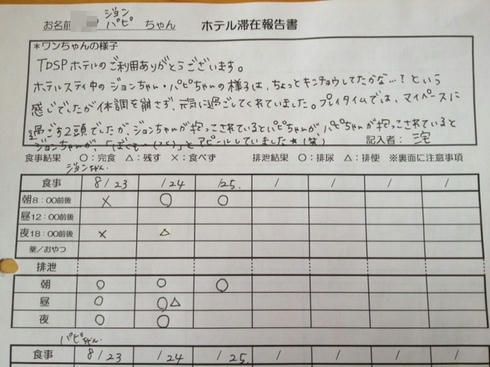 お名前 ジョン パピ ちゃん ホテル滞在報告書
*ワンちゃんの様子
TDSPホテルのご利用ありがとうございます。
ホテルステイ中のジョンちゃん・パピちゃんの様子は、ちょっとキンチョウしてたかな…?という
感じでしたが体調を崩さず、元気に過ごしてくれていました。プレイタイムでは、マイペースに
過ごす2頭でしたが、ジョンちゃんが抱っこされているとパピちゃんが、パピちゃんが抱っこされていると
ジョンちゃんが、「ぼくも…」とアピールしていました*(笑) 記入者:
食事結果 ○:完食 △:残す ×:食べず 排泄結果 ○:排尿 △:排便 ※裏面に注意事項
ジョンちゃん
食事 8/23 /24 /25. / / / /
朝8:00前後 × ○ ○
昼12:00前後
夜18:00前後 × △
薬/おやつ
排泄
朝 ○ ○ ○
昼 ○ ○△
夜 ○ ○
パピちゃん
食事 8/23 /24 /25. / / / /